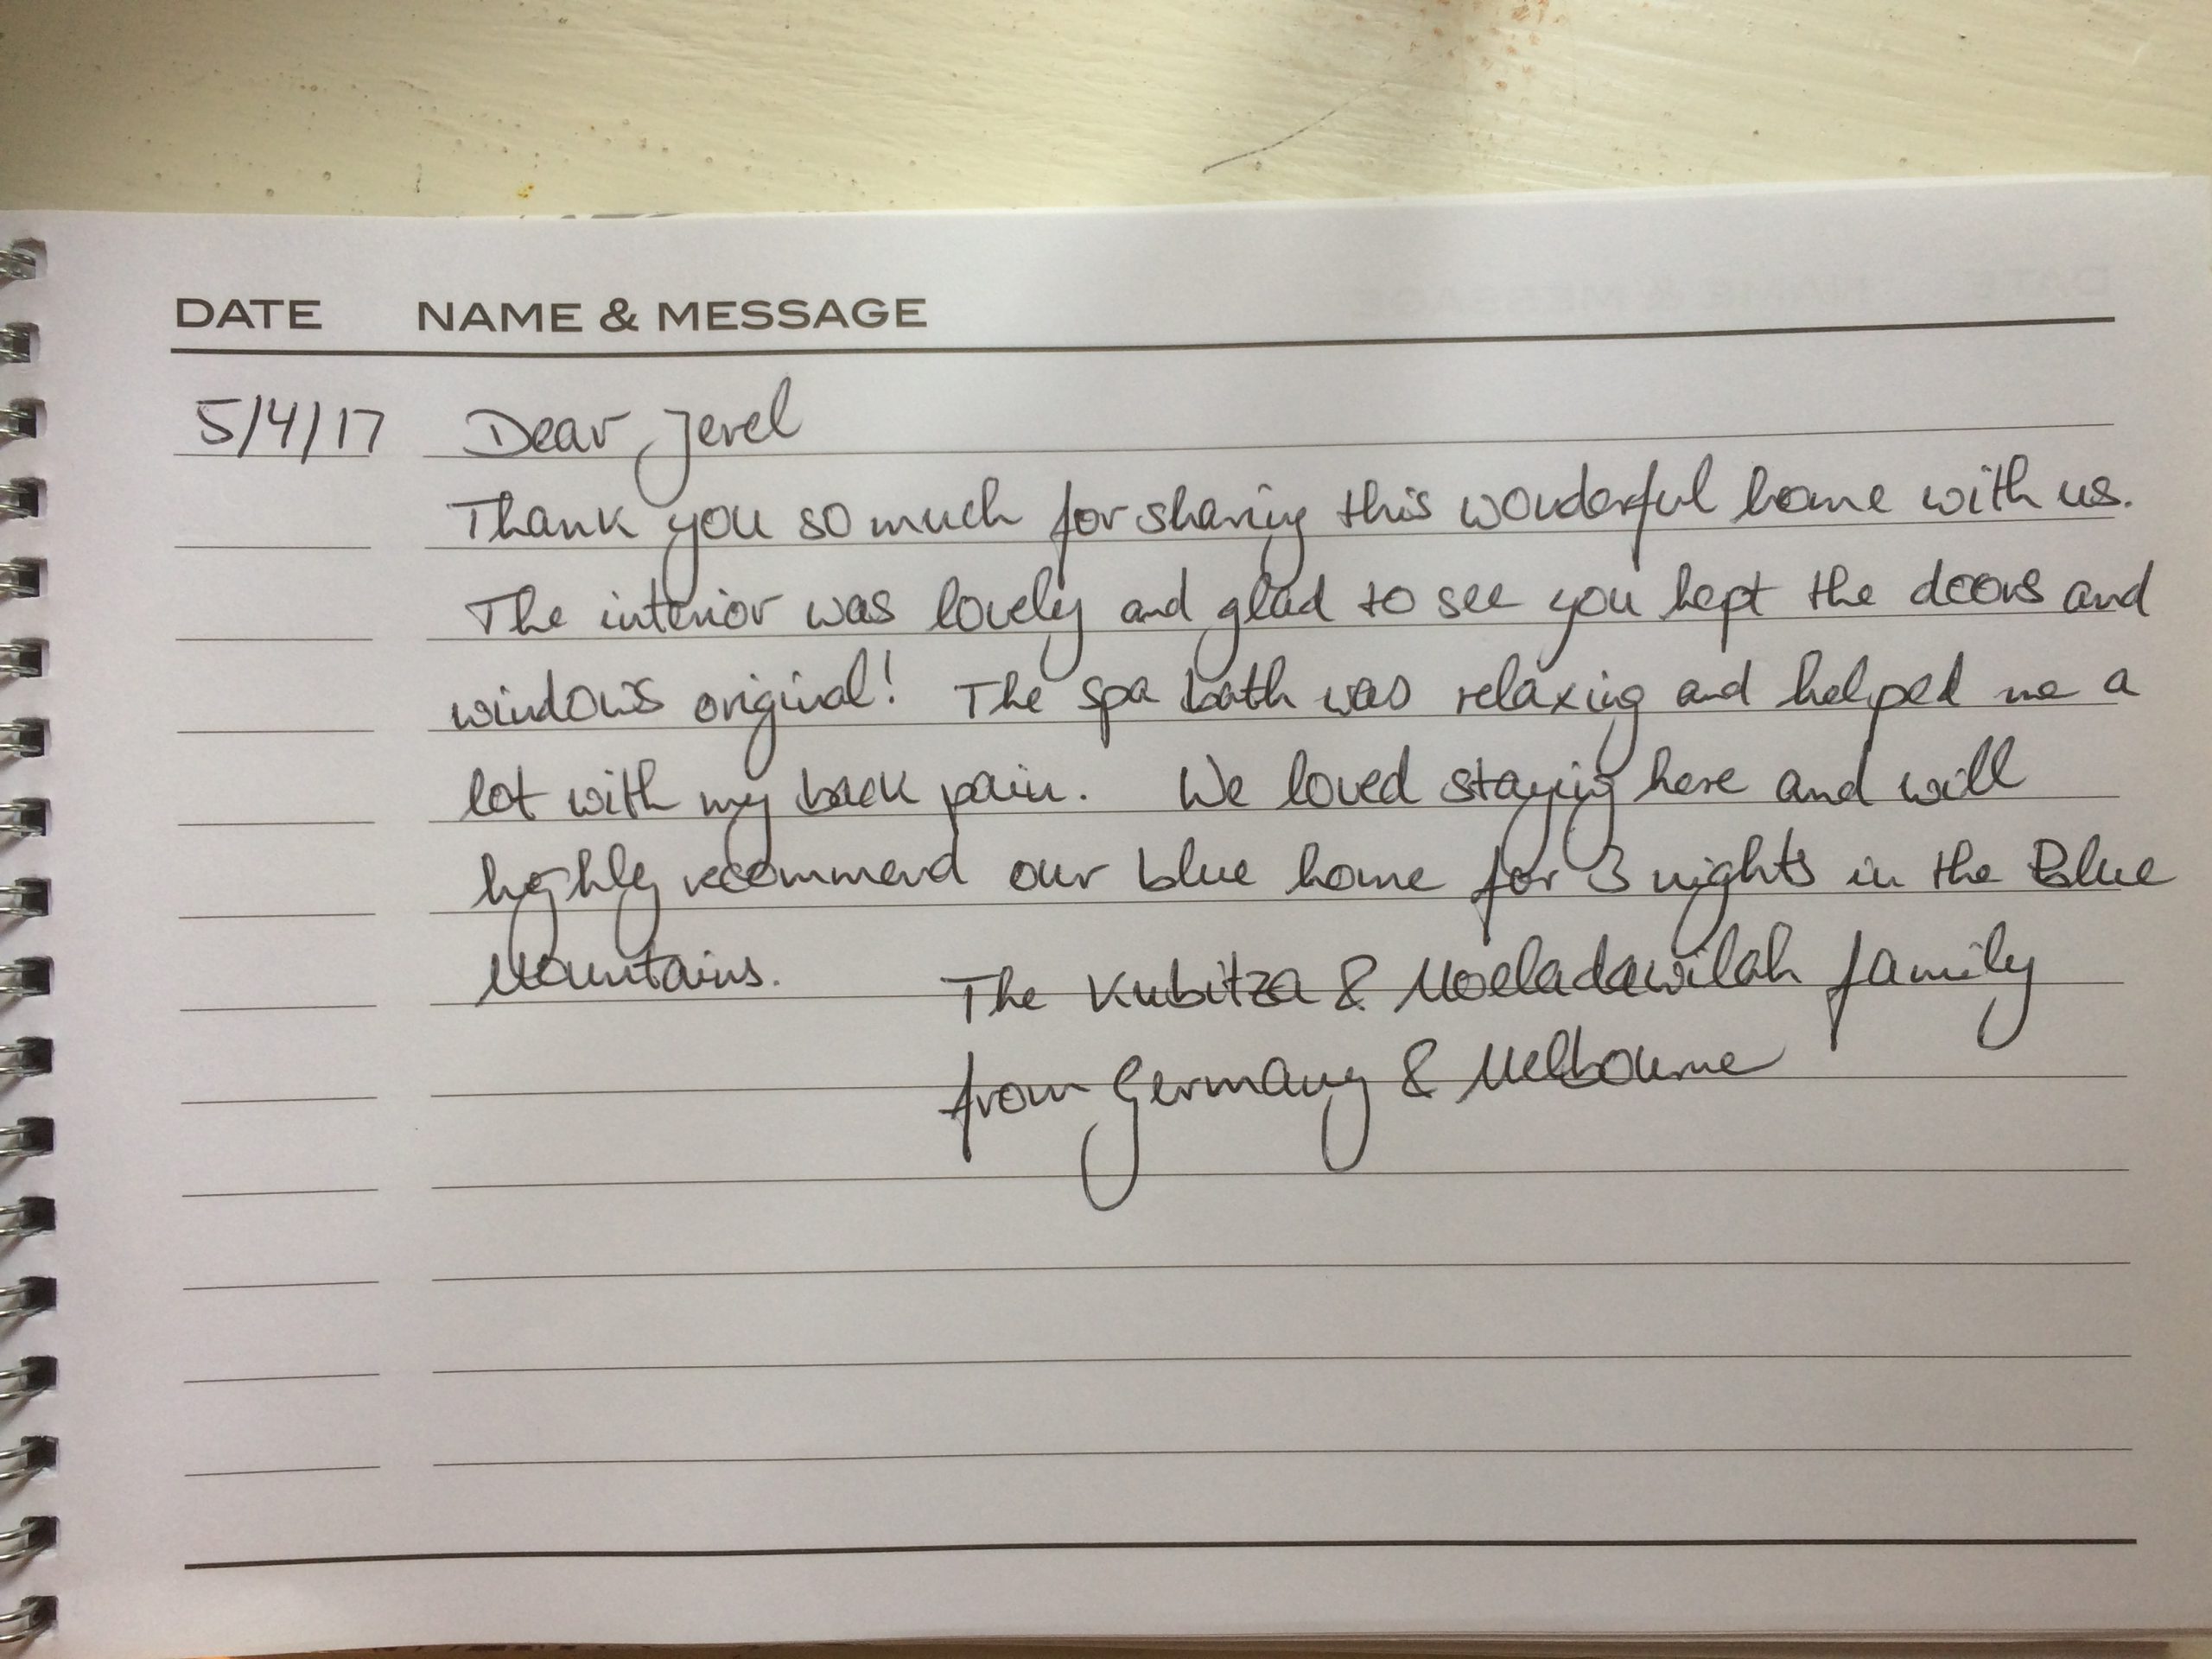 DATE NAME & MESSAGE
5/4/17 Dear Jerel
Thank you so much for sharing this wonderful home with us.
The interior was lovely and glad to see you kept the doors and
windows original! The spa bath was relaxing and helped me a
lot with my back pain. We loved staying here and will
highly recommend our blue home for 3 nights in the Blue
Mountains. The Kubitza & Moeladawilah family
from Germany & Melbourne